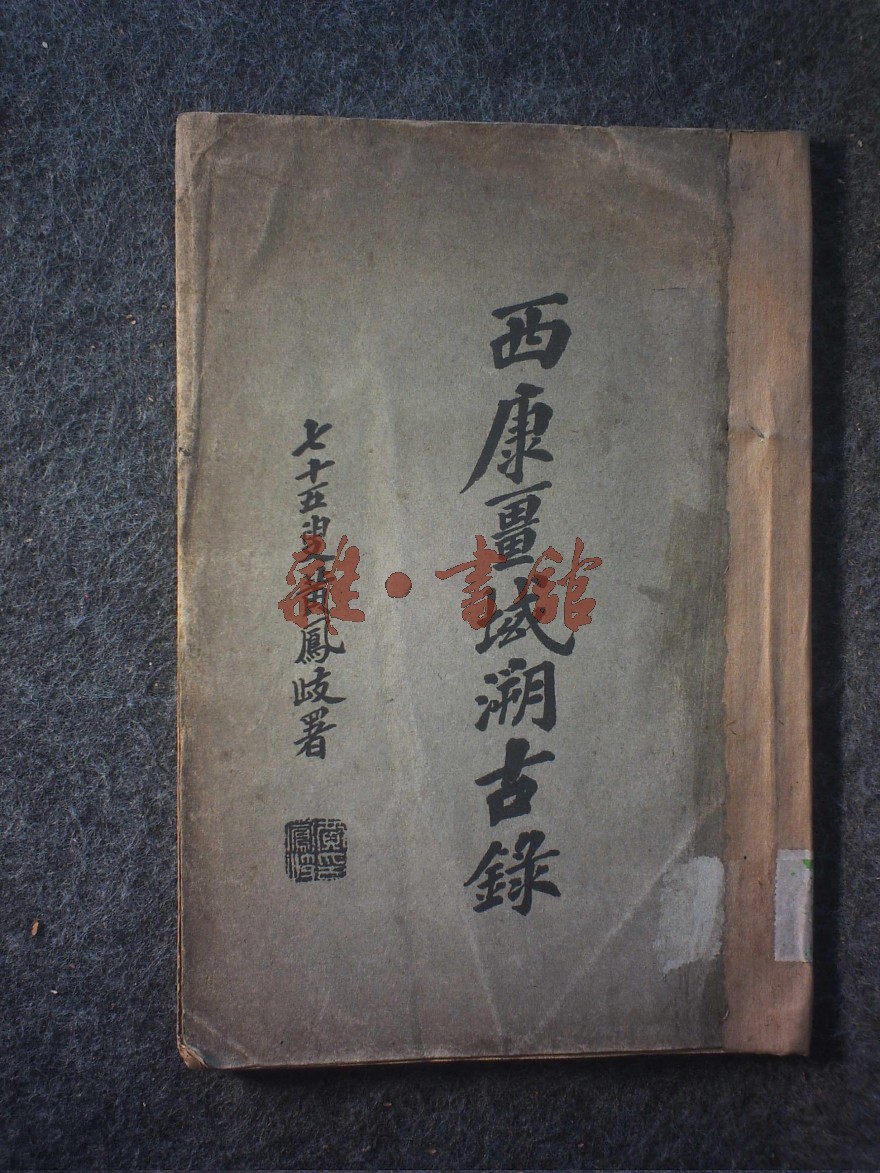 西康畺域溯古錄
七十五叟黄鳳岐署
雒·書館